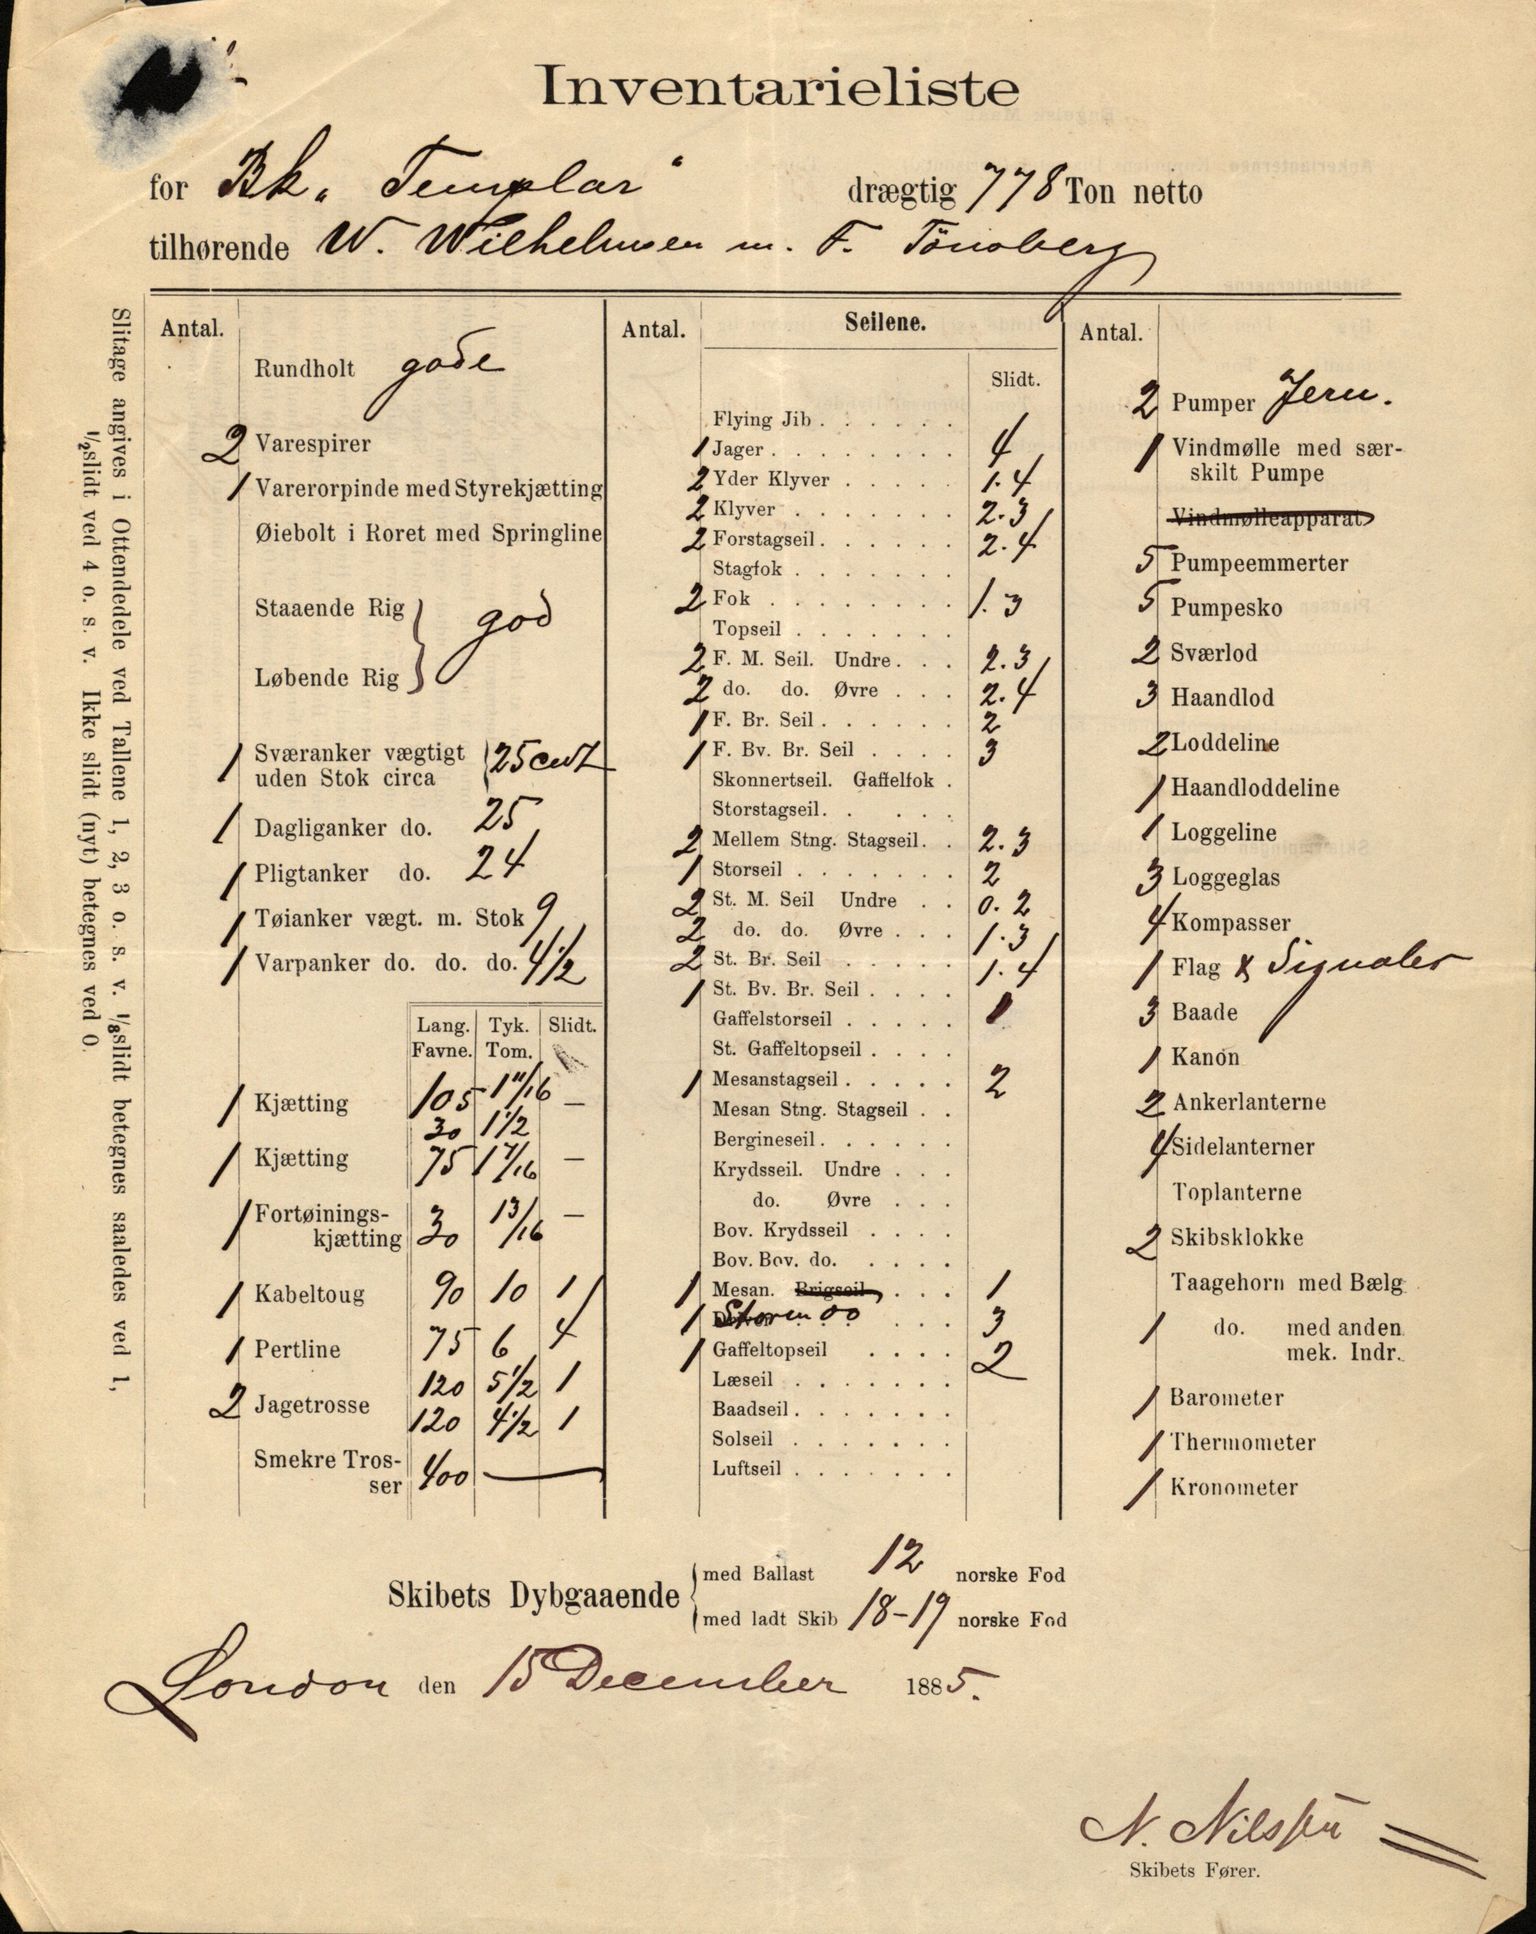 Inventarieliste
for Bk. "Templar" drægtig 778 Ton netto
tilhørende W. Wilhelmsen m. F. Tönsberg
Slitage angives i Ottendedele ved Tallene 1, 2, 3 o. s. v. 1/8 slidt betegnes saaledes ved 1,
1/2 slidt ved 4 o. s. v. Ikke slidt (nyt) betegnes ved 0.
Antal.
Rundholt gode
2 Varespirer
1 Varerorpinde med Styrekjætting
Øiebolt i Roret med Springline
Staaende Rig } god
Løbende Rig
1 Sværanker vægtigt
uden Stok circa { 25 cwt
1 Dagliganker do. 25
1 Pligtanker do. 24
1 Tøianker vægt. m. Stok 9
1 Varpanker do. do. do. 4 1/2
Lang. Tyk. Slidt.
Favne. Tom.
1 Kjætting 105 1 11/16 —
30 1 1/2
1 Kjætting 75 1 7/16 —
1 Fortøinings-
kjætting 30 13/16 —
1 Kabeltoug 90 10 1
1 Pertline 75 6 4
2 Jagetrosse 120 5 1/2 1
120 4 1/2 1
Smekre Tros-
ser 400 —
Antal. Seilene.
Slidt.
Flying Jib . . . . . .
1 Jager . . . . . . . . 4
2 Yder Klyver . . . . . 1. 4
2 Klyver . . . . . . . 2. 3
2 Forstagseil . . . . . . 2. 4
Stagfok . . . . . . .
2 Fok . . . . . . . . 1. 3
Topseil . . . . . . .
2 F. M. Seil. Undre . . . 2. 3
2 do. do. Øvre . . . 2. 4
1 F. Br. Seil . . . . . . 2
1 F. Bv. Br. Seil . . . . 3
Skonnertseil. Gaffelfok .
Storstagseil. . . . .
2 Mellem Stng. Stagseil. . 2. 3
1 Storseil . . . . . . . 2
2 St. M. Seil Undre . . 0. 2
2 do. do. Øvre . . . 1. 3
2 St. Br. Seil . . . . . 1. 4
1 St. Bv. Br. Seil . . . . 1
Gaffelstorseil . . . . .
St. Gaffeltopseil . . . .
1 Mesanstagseil . . . . . 2
Mesan Stng. Stagseil . .
Bergineseil . . . . . .
Krydsseil. Undre . . .
do. Øvre . . .
Bov. Krydsseil . . . .
Bov. Bov. do. . . . .
1 Mesan. Brigseil . . . 1
1 Storm do . . . 3
1 Gaffeltopseil . . . . 2
Læseil . . . . . . .
Baadseil . . . . . . .
Solseil . . . . . . .
Luftseil . . . . . . .
Antal.
2 Pumper Jern.
1 Vindmølle med sær-
skilt Pumpe
Vindmølleapparat
5 Pumpeemmerter
5 Pumpesko
2 Sværlod
3 Haandlod
2 Loddeline
1 Haandloddeline
1 Loggeline
3 Loggeglas
4 Kompasser
1 Flag & Signaler
3 Baade
1 Kanon
2 Ankerlanterne
4 Sidelanterner
Toplanterne
2 Skibsklokke
Taagehorn med Bælg
1 do. med anden
mek. Indr.
1 Barometer
1 Thermometer
1 Kronometer
Skibets Dybgaaende { med Ballast 12 norske Fod
med ladt Skib 18-19 norske Fod
London den 15 December 1885.
N. Nilssen
Skibets Fører.